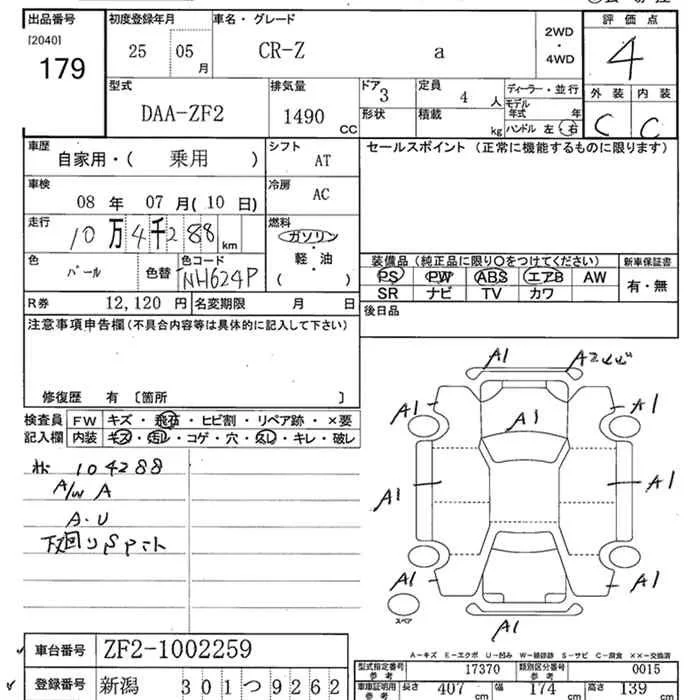 出品番号 初度登録年月 車名・グレード 評価点
[2040] 179 25 05月 CR-Z a 2WD・4WD 4
型式 排気量 ドア 3 定員 4人 ディーラー・並行 外装 内装
DAA-ZF2 1490 CC 形状 積載 kg モデル年式 年 ハンドル 左 右 C C
車歴 自家用・( 乗用 ) シフト AT セールスポイント (正常に機能するものに限ります)
車検 08年 07月(10日) 冷房 AC
走行 10万4千288km 燃料 ガソリン・軽・油 ( )
装備品(純正品に限り○をつけてください) 新車保証書
色 パール 色替 色コード NH624P PS PW ABS エアB AW 有・無
SR ナビ TV カワ
R券 12,120円 名変期限 月 日 後日品
注意事項申告欄(不具合内容等は具体的に記入して下さい)
修復歴 有 〔箇所 〕
検査員 FW キズ・飛石・ヒビ割・リペア跡・×要
記入欄 内装 キズ・汚レ・コゲ・穴・スレ・キレ・破レ
104288
A/W A
A・U
下回りSPニト
A1 A2
A1 A1 A1
A1 A1
A1 A1
スペア
A1
車台番号 ZF2-1002259
A-キズ E-エクボ U-凹み W-補修跡 S-サビ C-腐食 ××-交換済
型式指定番号 参考 17370 類別区分番号 参考 0015
登録番号 新潟 301つ9262
車庫証明用 参考 長さ 407cm 幅 174cm 高さ 139cm